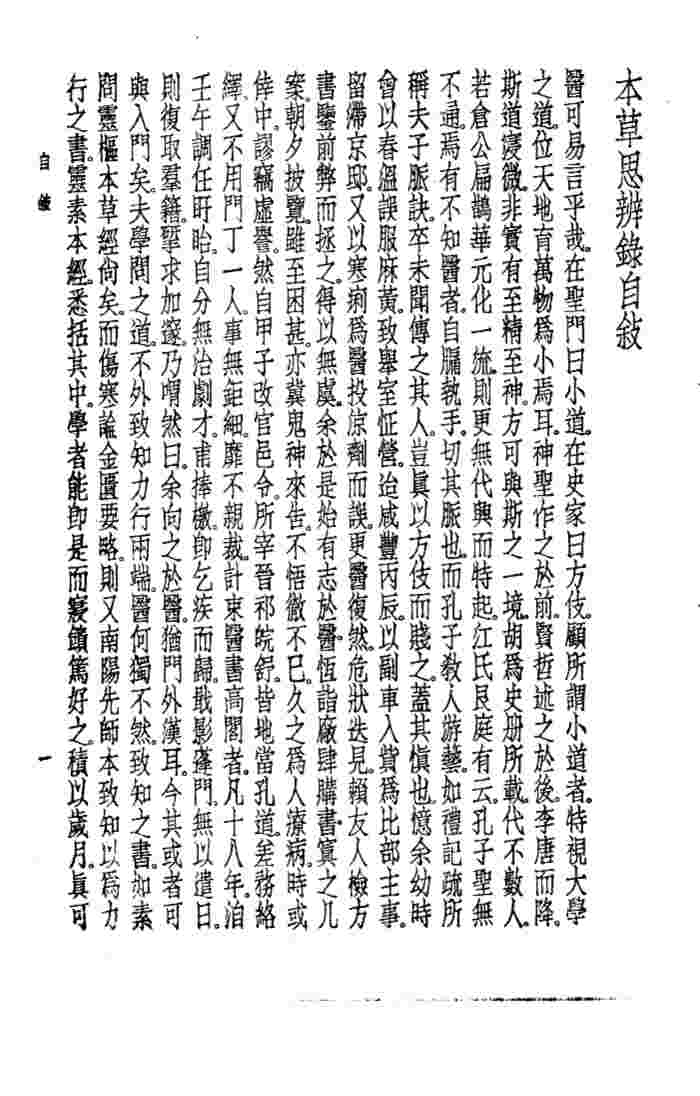 本草思辨錄自敍
醫可易言乎哉。在聖門曰小道。在史家曰方伎。顧所謂小道者。特視大學
之道。位天地育萬物爲小焉耳。神聖作之於前。賢哲述之於後。李唐而降。
斯道寖微。非實有至精至神。方可與斯之一境。胡爲史册所載。代不數人。
若倉公扁鵲華元化一流。則更無代興而特起。江氏艮庭有云。孔子聖無
不通。焉有不知醫者。自牖執手。切其脈也。而孔子敎人游藝。如禮記疏所
稱夫子脈訣。卒未聞傳之其人。豈眞以方伎而賤之。蓋其愼也。憶余幼時
曾以春溫誤服麻黃。致舉室怔營。迨咸豐丙辰。以副車入貲爲比部主事。
留滯京邸。又以寒痢爲醫投凉劑而誤。更醫復然。危狀迭見。賴友人檢方
書鑒前弊而拯之。得以無虞。余於是始有志於醫。恆詣廠肆購書。寘之几
案。朝夕披覽。雖至困甚。亦冀鬼神來告。不悟徹不已。久之爲人療病。時或
倖中。謬竊虛譽。然自甲子改官邑令。所宰晉祁皖舒。皆地當孔道。差務絡
繹。又不用門丁一人。事無鉅細。靡不親裁。計束醫書高閣者。凡十八年。洎
壬午調任盱眙。自分無治劇才。甫捧檄。卽乞疾而歸。戢影蓬門。無以遣日。
則復取羣籍。揅求加邃。乃喟然曰。余向之於醫。猶門外漢耳。今其或者可
與入門矣。夫學問之道。不外致知力行兩端。醫何獨不然。致知之書。如素
問靈樞本草經尙矣。而傷寒論金匱要略。則又南陽先師本致知以爲力
行之書。靈素本經。悉括其中。學者能卽是而寢饋篤好之。積以歲月。眞可
自敍
一